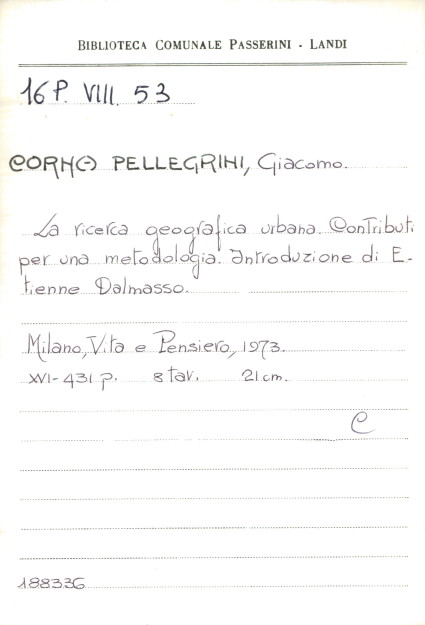 BIBLIOTECA COMUNALE PASSERINI - LANDI
16 P. VIII. 53
CORNA PELLEGRINI, Giacomo.
La ricerca geografica urbana. Contributi
per una metodologia. Introduzione di E-
tienne Dalmasso.
Milano, Vita e Pensiero, 1973.
XVI-431 p. 8 tav. 21 cm.
C
188336